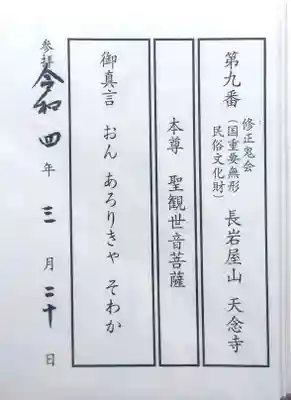 第九番
修正鬼会
(国重要無形
民俗文化財)
長岩屋山 天念寺
本尊 聖観世音菩薩
御真言 おん あろりきゃ そわか
参拝 令和四年三月二十日